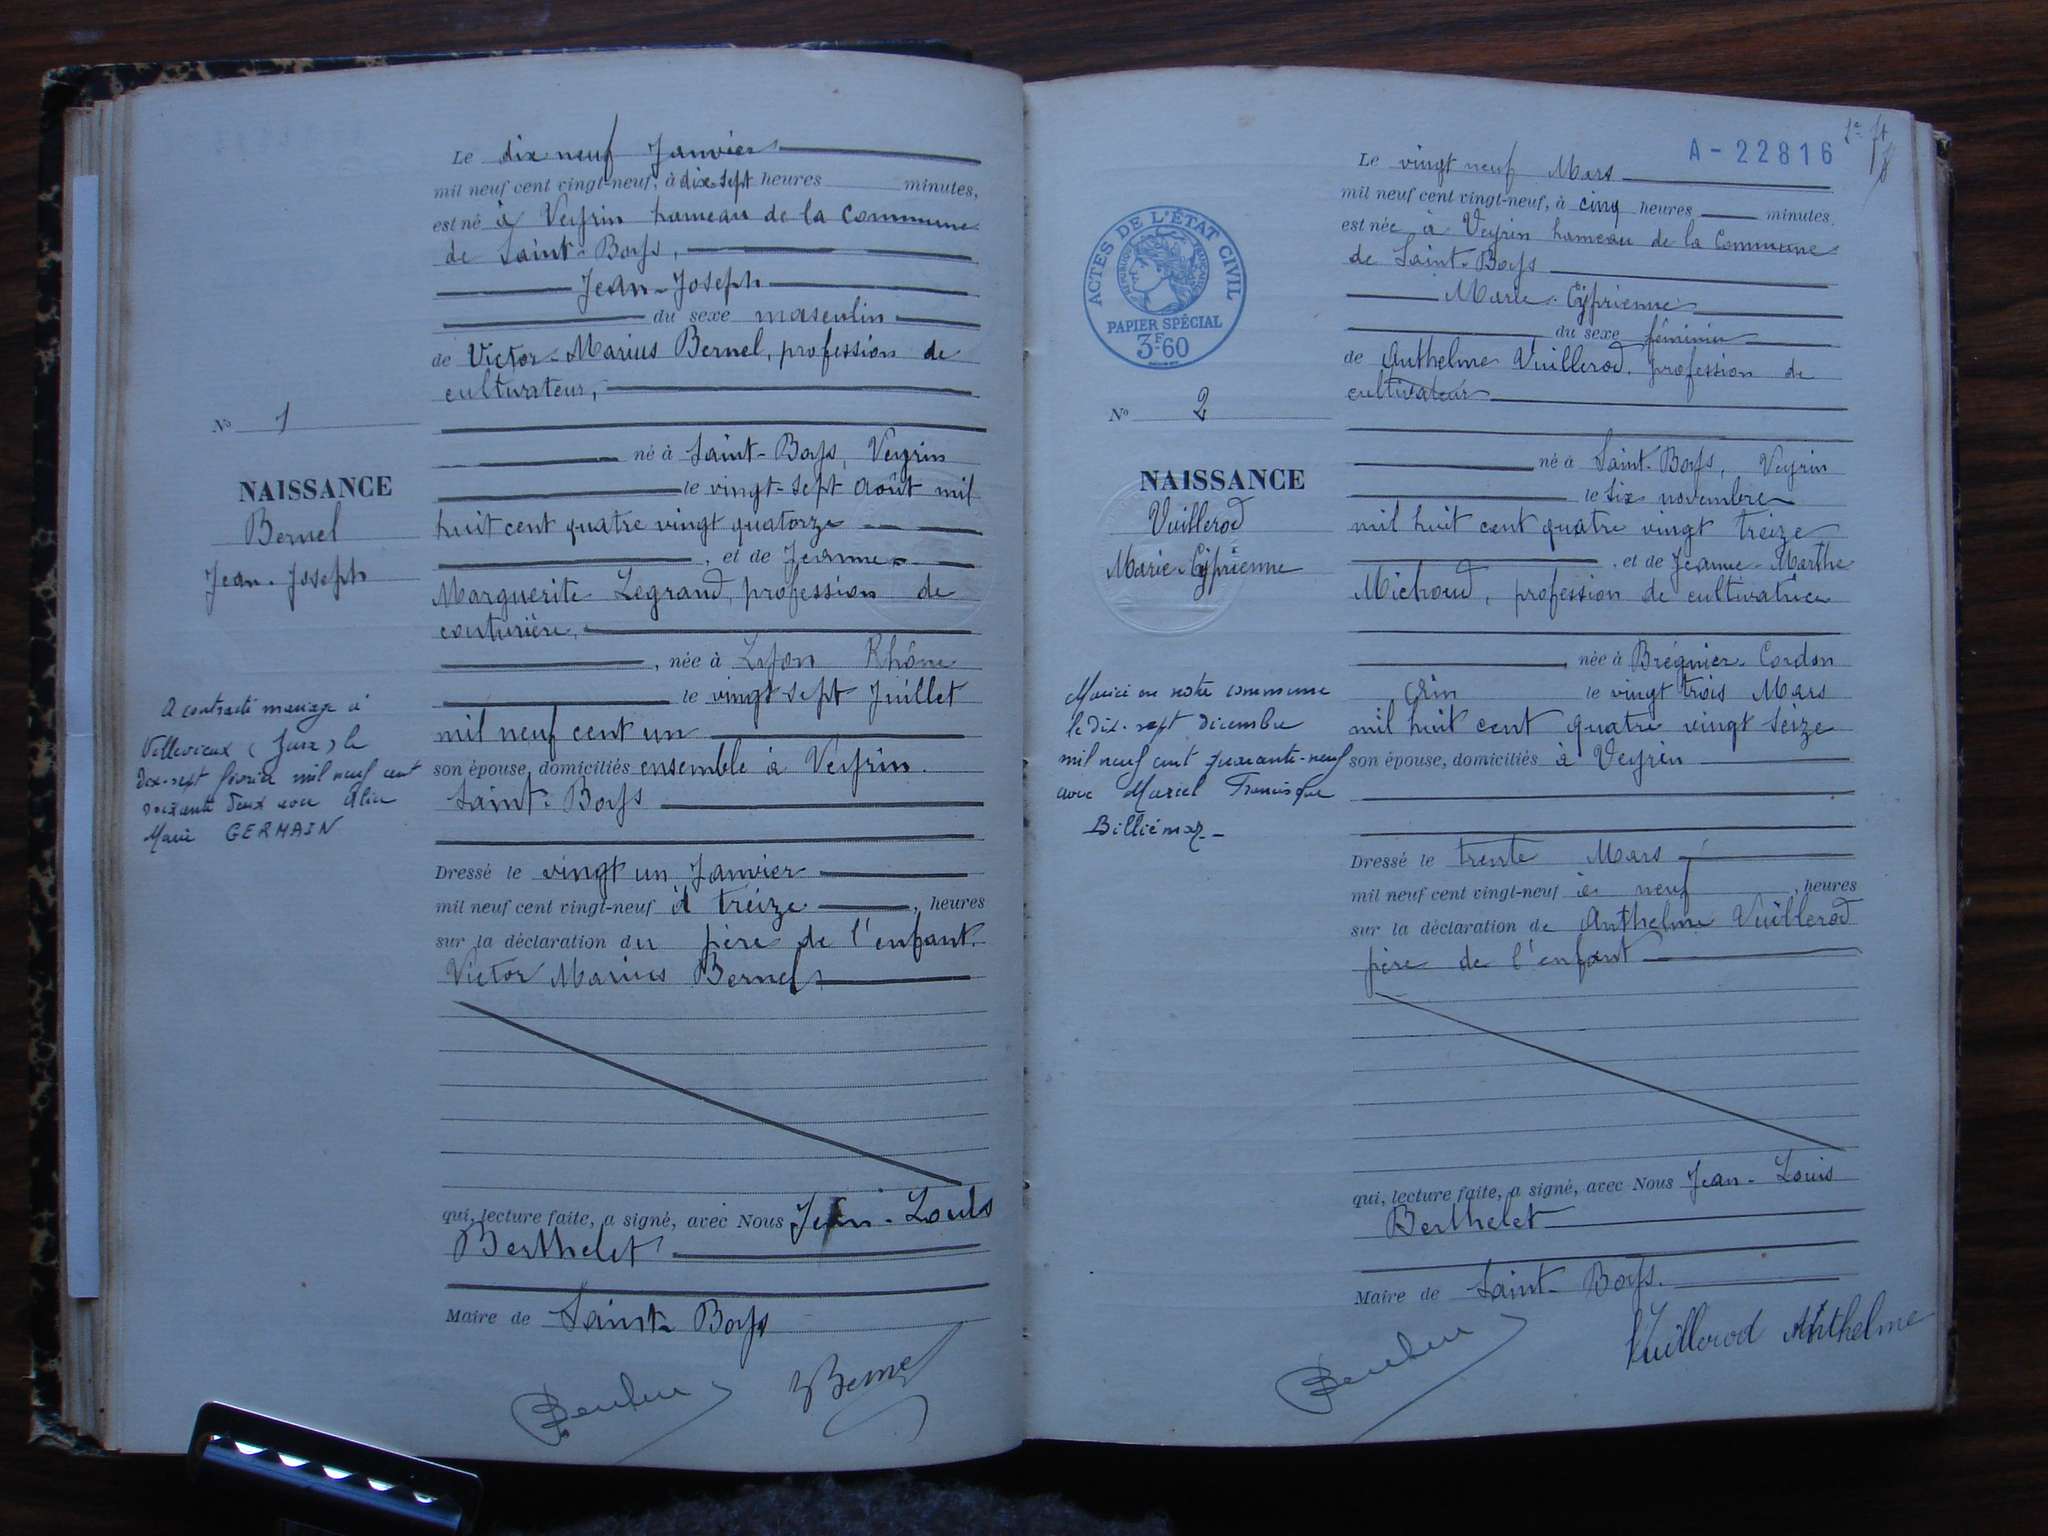 Le dix neuf Janvier
mil neuf cent vingt-neuf, à dix-sept heures minutes,
est né à Veyrin hameau de la Commune
de Saint-Boys,
Jean-Joseph
du sexe masculin
de Victor-Marius Bernel, profession de
cultivateur,
né à Saint-Boys, Veyrin
le vingt-sept Août mil
huit cent quatre vingt quatorze
, et de Jeanne-
Marguerite Legrand, profession de
couturière,
, née à Lyon Rhône
le vingt sept Juillet
mil neuf cent un
son épouse, domiciliés ensemble à Veyrin.
Saint-Boys
Dressé le vingt un Janvier
mil neuf cent vingt-neuf à treize , heures
sur la déclaration du père de l'enfant.
Victor Marius Bernel
qui, lecture faite, a signé, avec Nous Jean-Louis
Berthelet
Maire de Saint-Boys
Bernel
No 1
NAISSANCE
Bernel
Jean-Joseph
A contracté mariage à
Villevieux (Jura) le
dix-sept février mil neuf cent
soixante deux avec Alice
Marie GERMAIN
A-22816
Le vingt neuf Mars
mil neuf cent vingt-neuf, à cinq heures minutes.
est née à Veyrin hameau de la Commune
de Saint-Boys
Marie-Cyprienne
du sexe féminin
de Anthelme Vuillerod, profession de
cultivateur
né à Saint-Boys, Veyrin
le six novembre
mil huit cent quatre vingt treize
, et de Jeanne-Marthe
Michoud, profession de cultivatrice
, née à Brégnier-Cordon
Ain le vingt trois Mars
mil huit cent quatre vingt seize
son épouse, domiciliés à Veyrin
Dressé le trente Mars
mil neuf cent vingt-neuf à neuf , heures
sur la déclaration de Anthelme Vuillerod
père de l'enfant
qui, lecture faite, a signé, avec Nous Jean-Louis
Berthelet
Maire de Saint-Boys.
Vuillerod Anthelme
ACTES DE L'ÉTAT CIVIL
RÉPUBLIQUE FRANÇAISE
PAPIER SPÉCIAL
3F60
No 2
NAISSANCE
Vuillerod
Marie-Cyprienne
Mariée en notre commune
le dix-sept décembre
mil neuf cent quarante-neuf
avec Marcel Francisque
Billiémaz